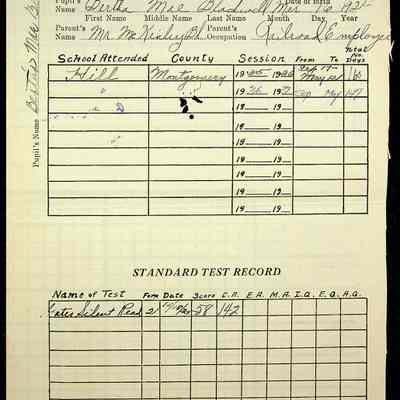 Pupil's Bertha Mae Date of Birth Mar. 19
First Name Middle Name Last Name Month Day Year
Parent's Name Mr. McKinley Bl. Parent's Occupation Railroad Employee
Pupil's Name Bertha Mae
School Attended County Session From To Total No. Days
Hill Montgomery 19 35 19 36 Sep 17- May 21 160
" 19 36 19 37 Sep May 147
19 19
19 19
19 19
19 19
19 19
19 19
STANDARD TEST RECORD
Name of Test Form Date Score C.A. E.A. M.A. I.Q. E.Q. A.Q.
Gates Silent Read 21 58 142